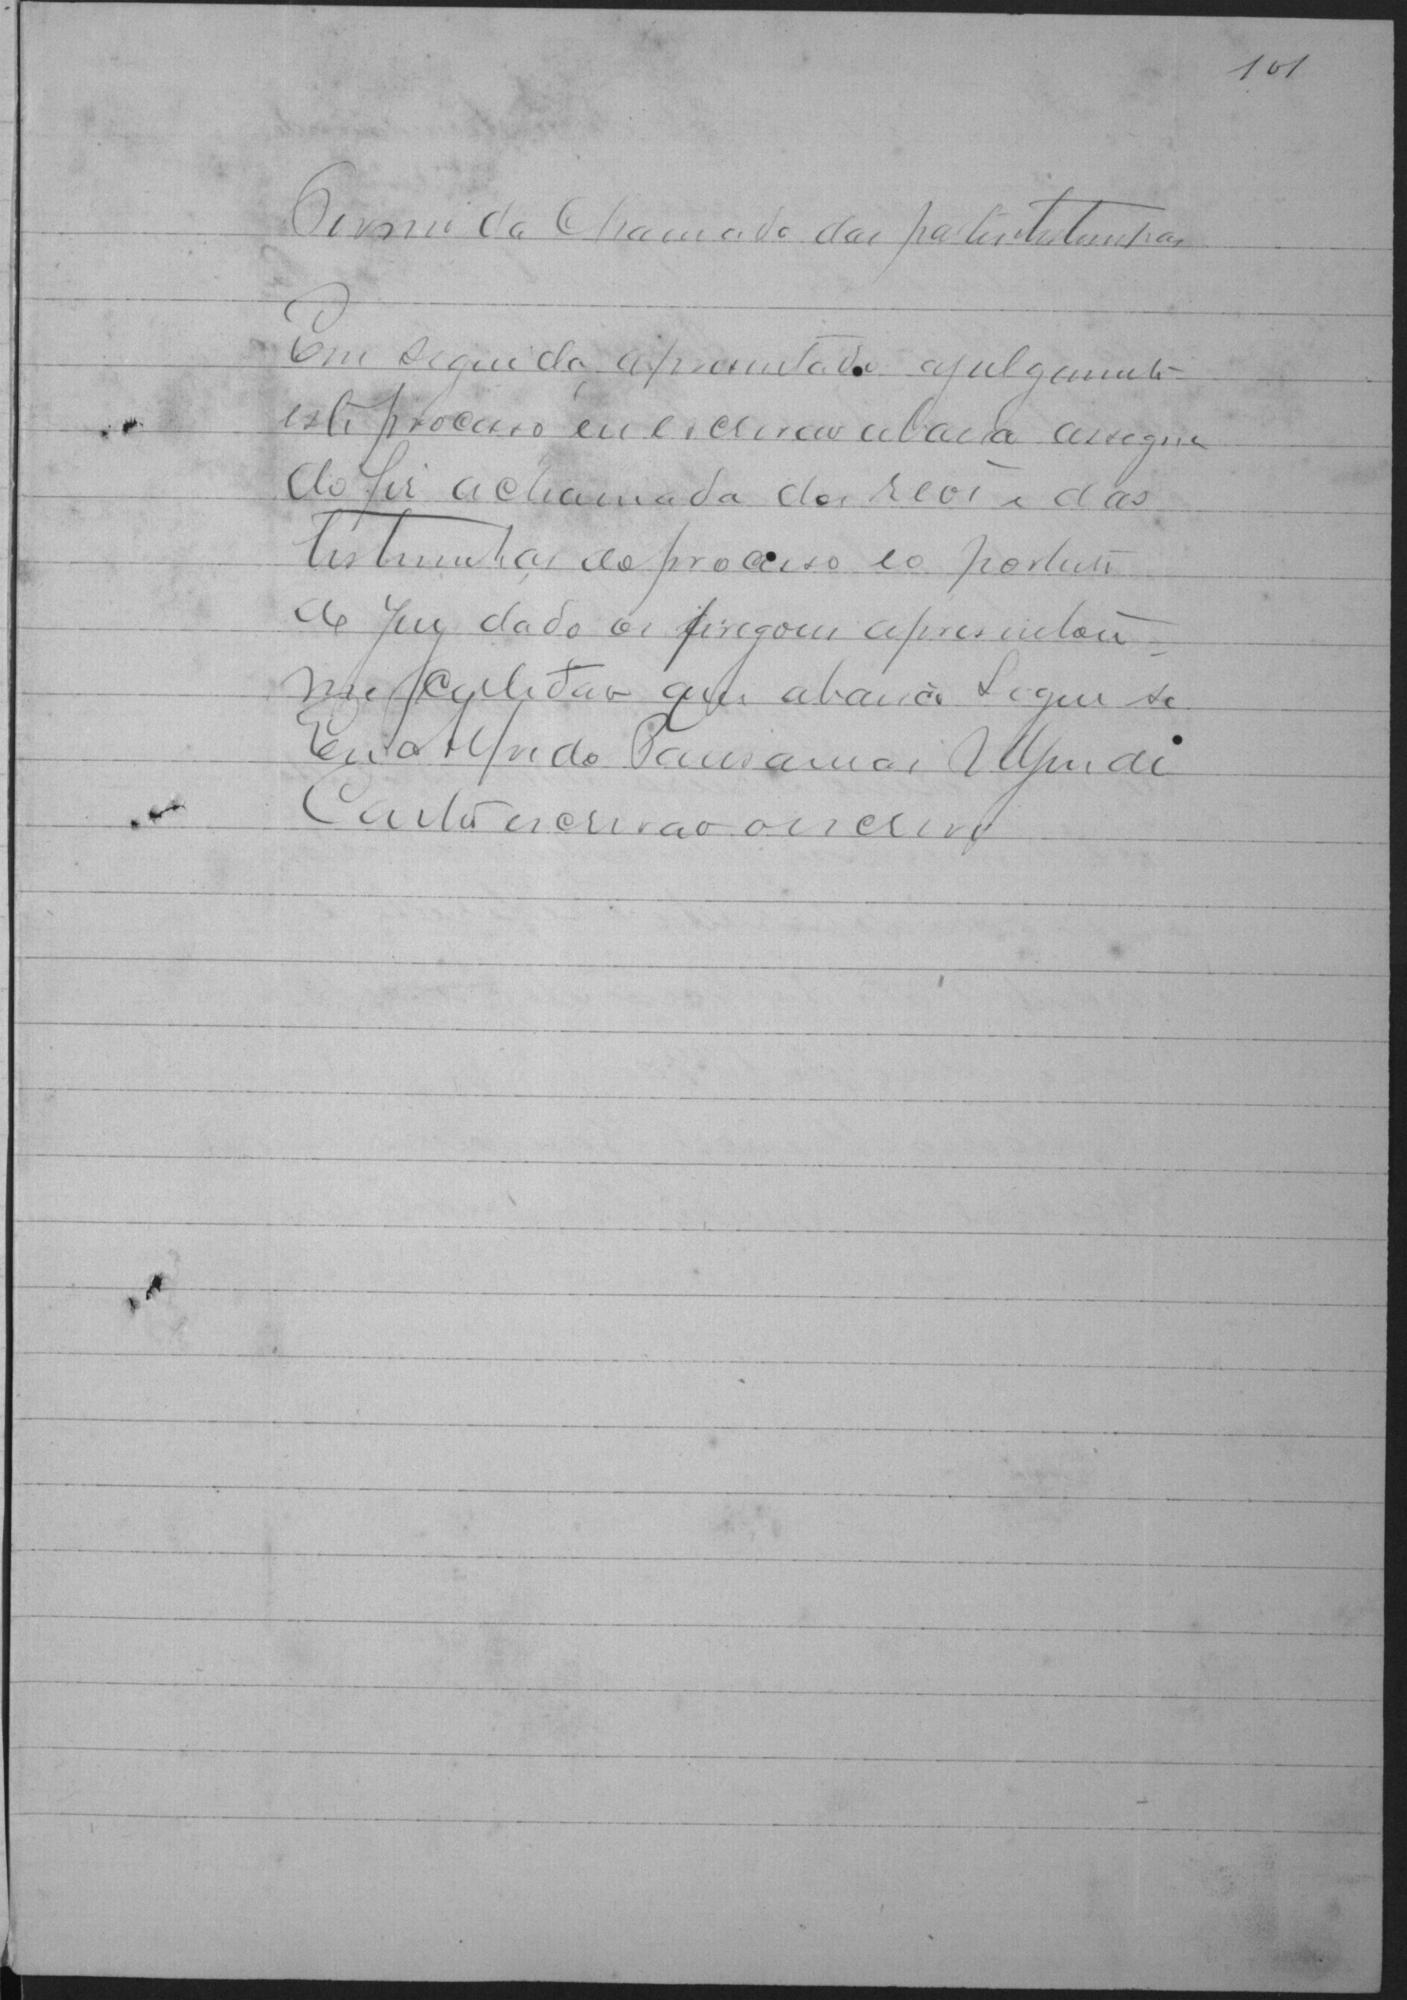 101
Termo da Chamada das partes testemunhas
Em seguida apresentado ajulgamento
este processo eu escrivão abaixo assigna
do fiz achamada dos reos e das
testemunhas do processo eo porteiro
do Jury dado os pregoes apresentou-
me certidão que abaixo segue se
Eu Alfredo
escrivão o escrevi